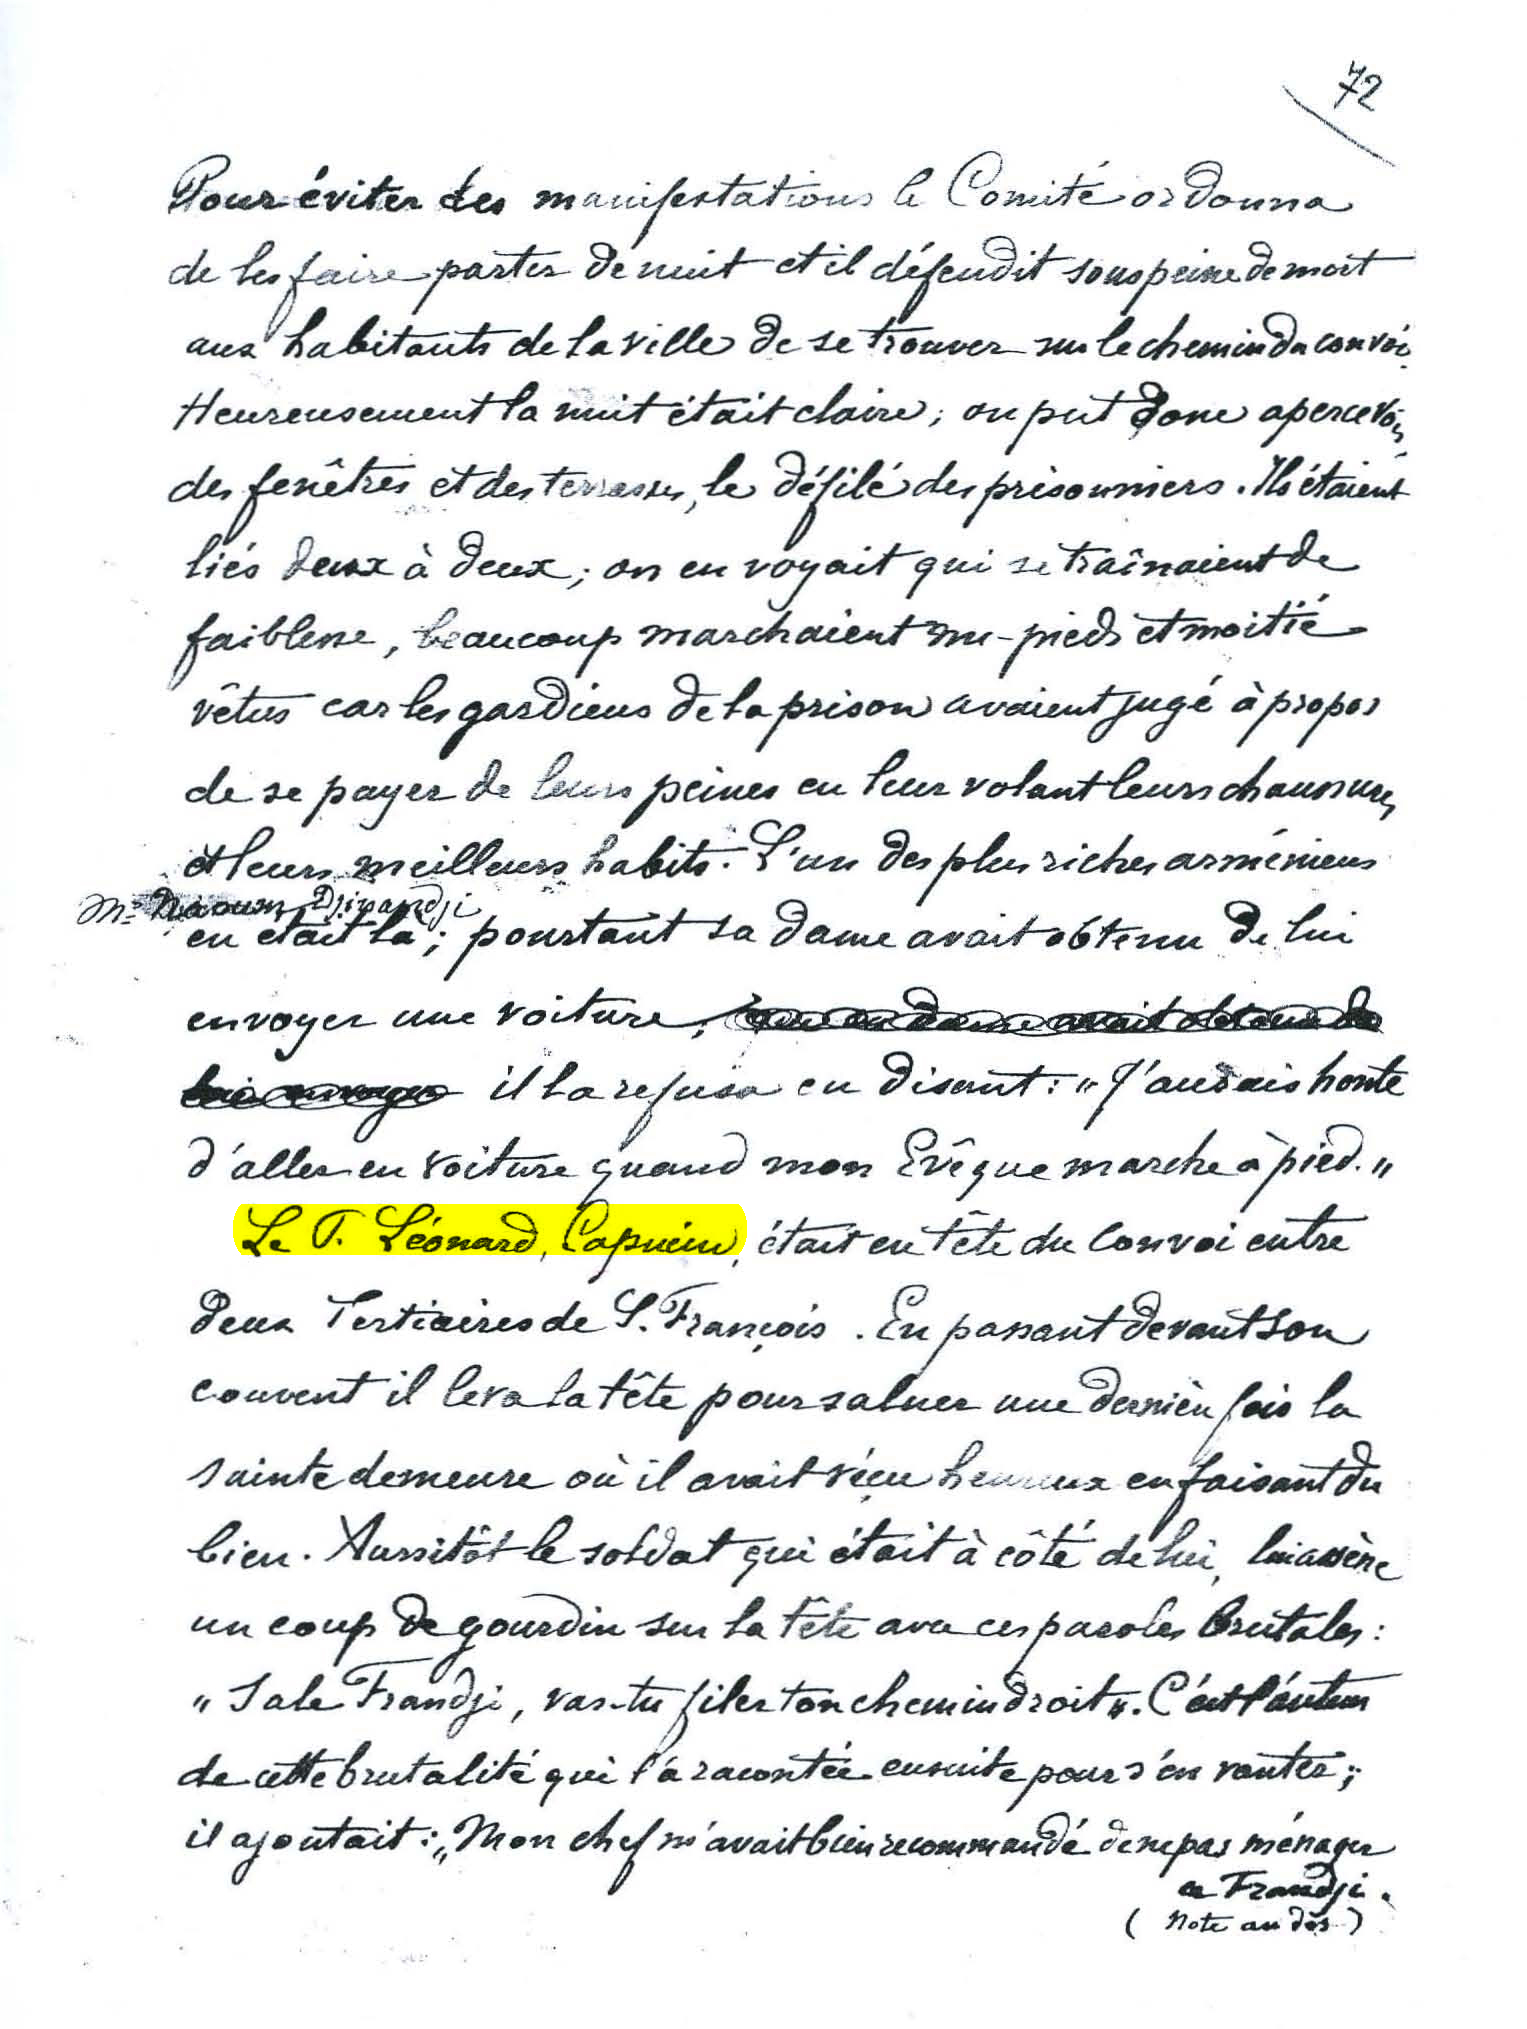 72
Pour éviter des manifestations le Comité ordonna
de les faire partir de nuit et il défendit sous peine de mort
aux habitants de la ville de se trouver sur le chemin du convoi.
Heureusement la nuit était claire, on put donc apercevoir,
des fenêtres et des terrasses, le défilé des prisonniers. Ils étaient
liés deux à deux; on en voyait qui se traînaient de
faiblesse, beaucoup marchaient nu-pieds et moitié
vêtus car les gardiens de la prison avaient jugé à propos
de se payer de leurs peines en leur volant leurs chaussures
et leurs meilleurs habits. L'un des plus riches arméniens
Mr Naoum Djinandji
en était là; pourtant sa dame avait obtenu de lui
envoyer une voiture, il la refusa en disant: "J'aurais honte
d'aller en voiture quand mon Evêque marche à pied."
Le P. Léonard, Capucin, était en tête du convoi entre
deux Tertiaires de S. François. En passant devant son
couvent il leva la tête pour saluer une dernière fois la
sainte demeure où il avait vécu heureux en faisant du
bien. Aussitôt le soldat qui était à côté de lui, lui assène
un coup de gourdin sur la tête avec ces paroles brutales:
"Sale Frandji, vas-tu filer ton chemin droit". C'est l'auteur
de cette brutalité qui l'a racontée ensuite pour s'en vanter;
il ajoutait: "Mon chef m'avait bien recommandé de ne pas ménager
ce Frandji.
(Note au dos)